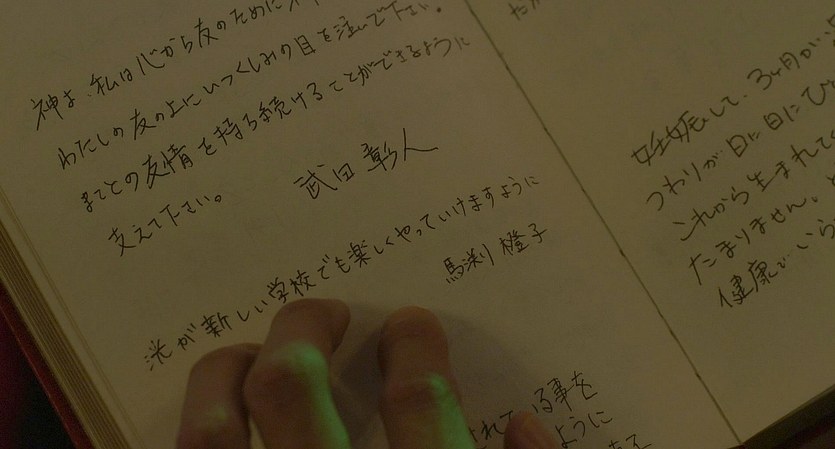 神よ、私は心から友のために
わたしの友の上にいつくしみの目を注いで下さい。
まことの友情を持ち続けることができるように
支えて下さい。
武田 彰人
洸が新しい学校でも楽しくやっていけますように
馬渕 橙子
る事を
ように
妊娠して、3ヶ月が
つわりが日に日にひ
これから生まれて
たまりません。
健康で、いら